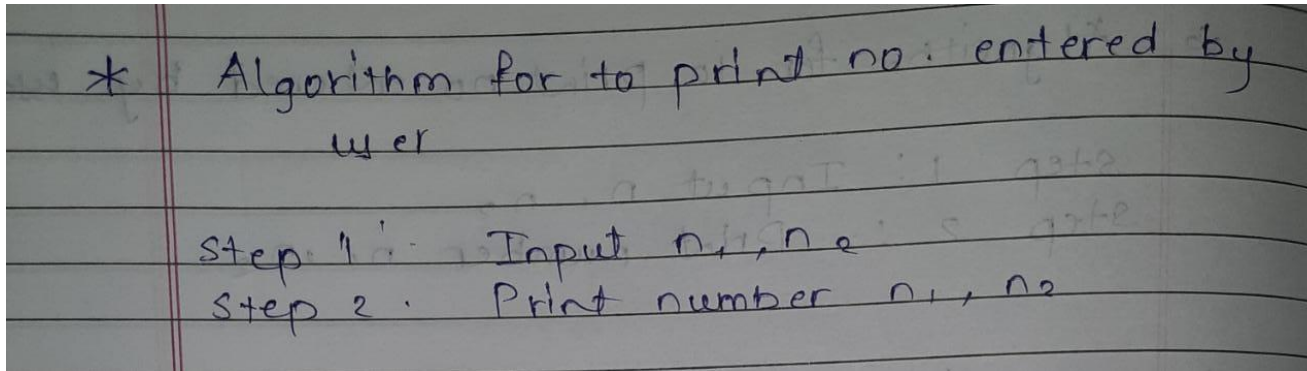 * Algorithm for to print no. entered by
user
Step 1: Input n₁, n₂
Step 2. Print number n₁, n₂